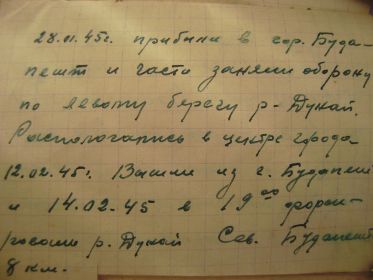 28.01.45г. прибыли в гор. Буда-
пешт и части заняли оборону
по левому берегу р-Дунай.
Распологались в центре города
12.02.45г. Вышли из г. Будапешт
и 14.02.45 в 19⁰⁰ форси-
ровали р. Дунай Сев. Будапешт
8 км.